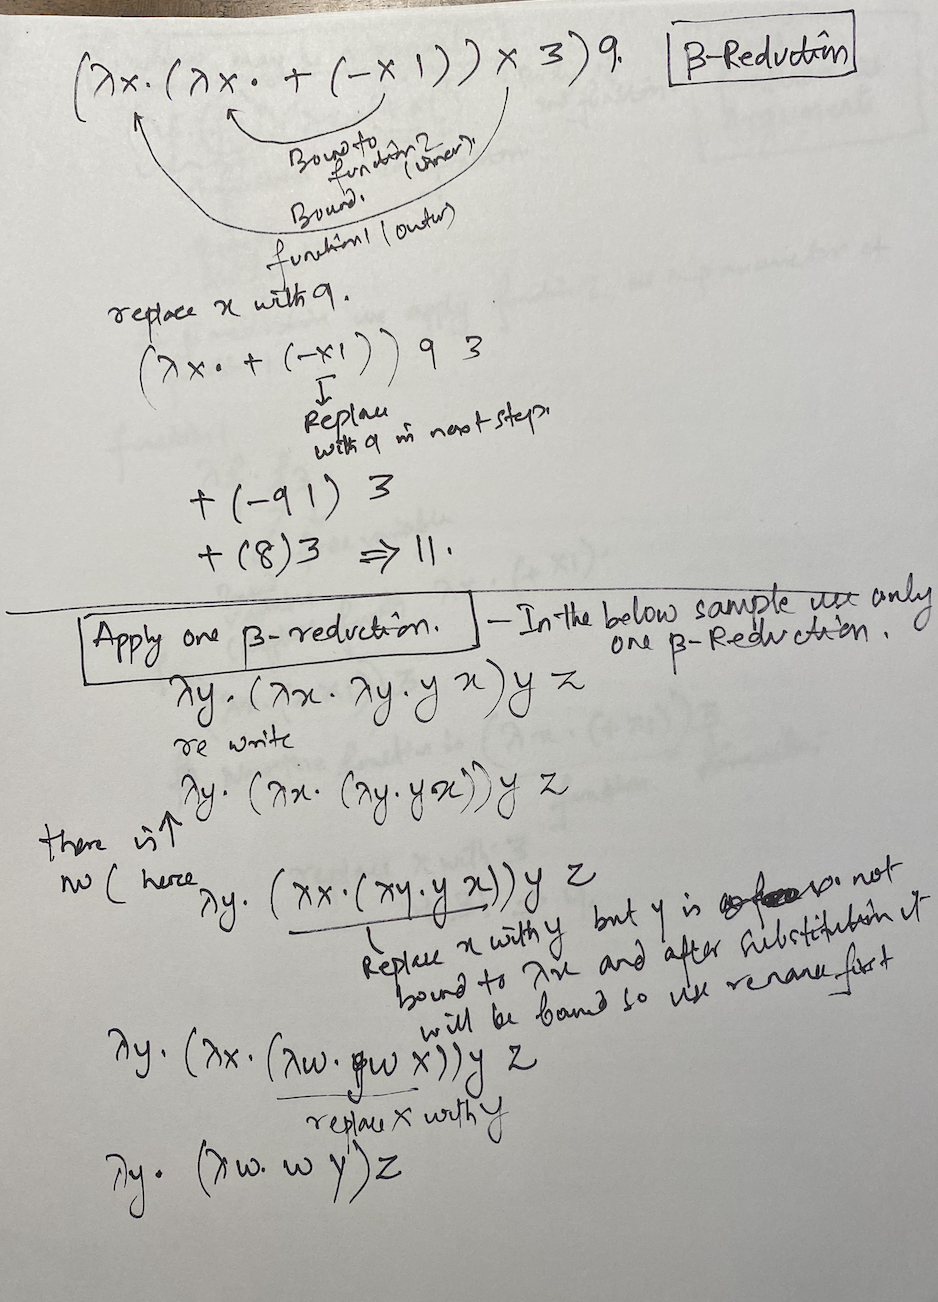 (λx.(λx. + (-x 1)) x 3) 9. β-Reduction
Bound to
function 2
(inner).
Bound.
function1 (outer)
replace x with 9.
(λx. + (-x1)) 9 3
Replace
with 9 in next step.
+ (-9 1) 3
+ (8) 3 ⇒ 11.
Apply one β-reduction. - In the below sample use only
one β-Reduction.
λy. (λx. λy. y x) y z
re write
λy. (λx. (λy. y x)) y z
there is ↑
no ( here
λy. (λx. (λy. y x)) y z
Replace x with y but y is not
bound to λx and after substitution it
will be bound so use rename first
λy. (λx. (λw. w x)) y z
replace x with y
λy. (λw. w y) z